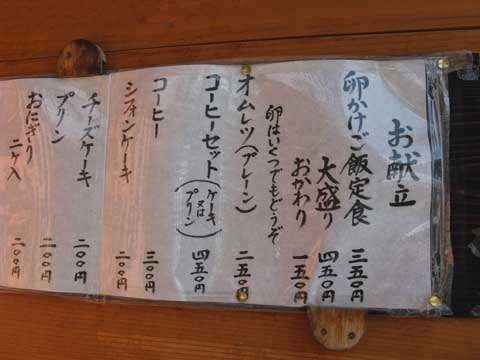 お献立
卵かけご飯定食 三五〇円
大盛り 四五〇円
おかわり 一五〇円
卵はいくつでもどうぞ
オムレツ(プレーン) 二五〇円
コーヒーセット(ケーキ又はプリン) 四五〇円
コーヒー 三〇〇円
シフォンケーキ 二〇〇円
チーズケーキ 二〇〇円
プリン 二〇〇円
おにぎり 二ケ入 二〇〇円